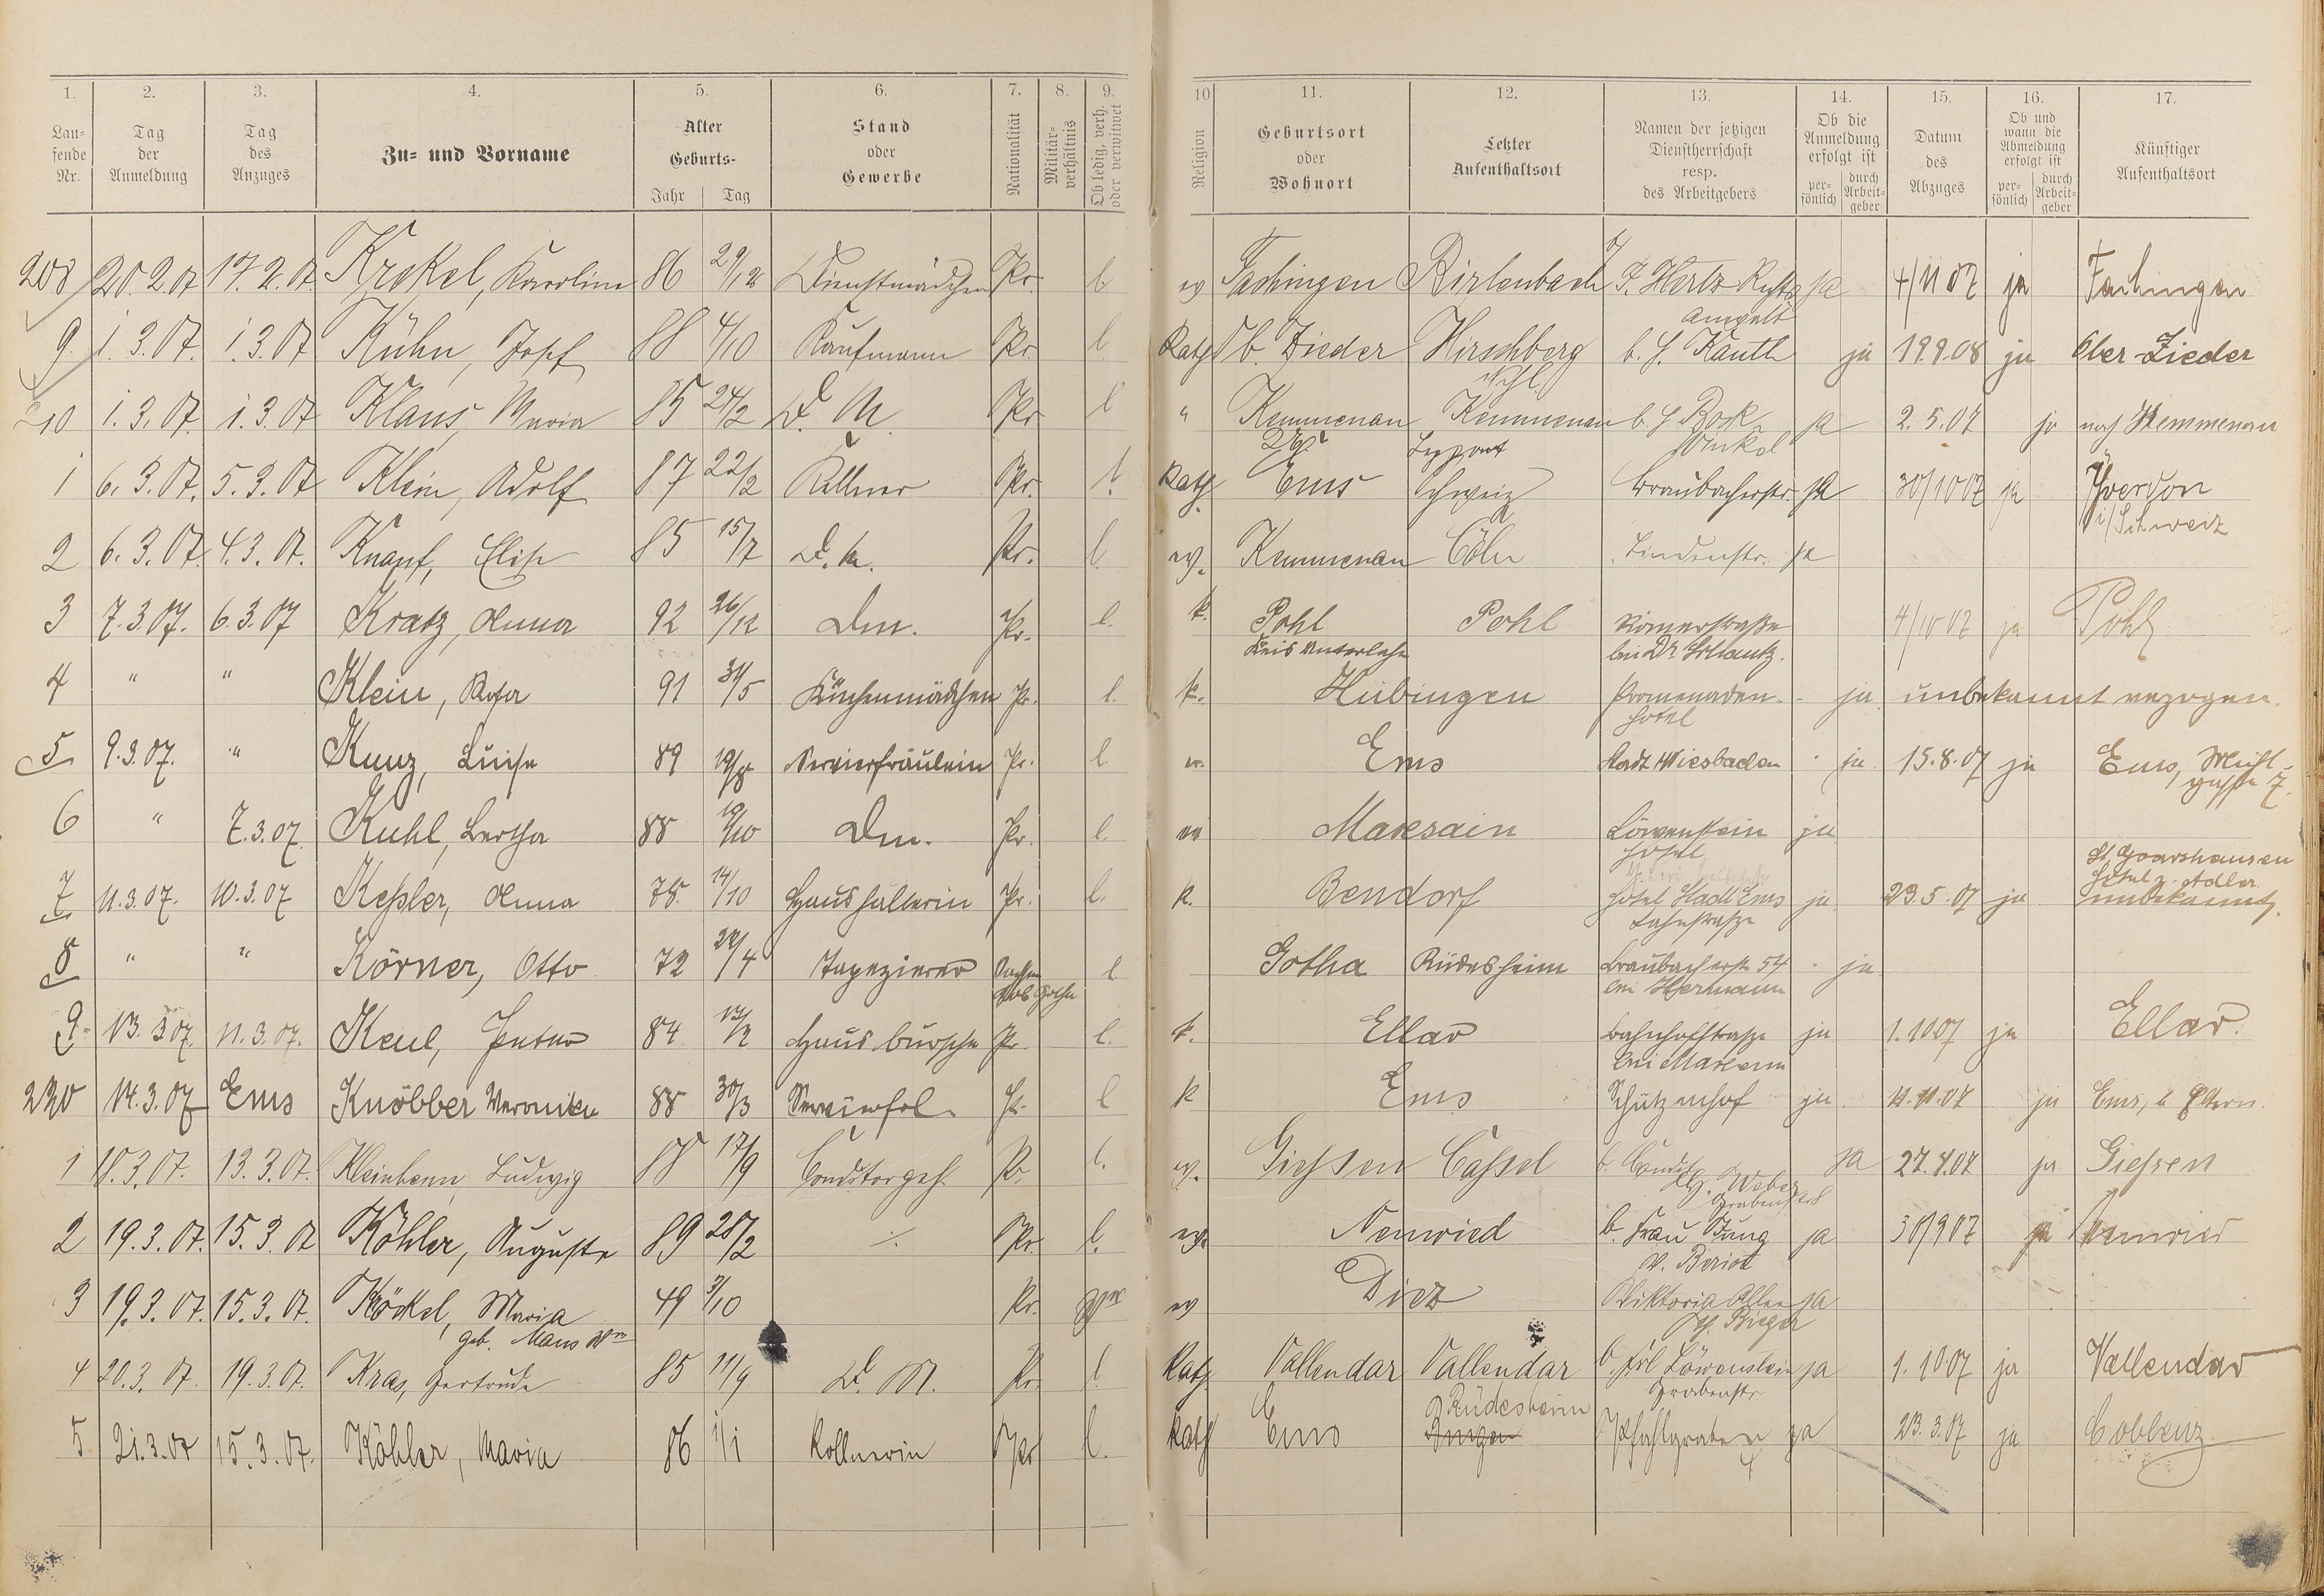 1. 2. 3. 4. 5. 6. 7. 8. 9. 10 11. 12. 13. 14. 15. 16. 17.
Lau-fende Nr. Tag der Anmeldung Tag des Anzuges Zu- und Vorname Alter Geburts- Jahr Tag Stand oder Gewerbe Nationalität Militär-verhältnis Ob ledig, verh. oder verwitwet Religion Geburtsort oder Wohnort Letzter Aufenthaltsort Namen der jetzigen Dienstherrschaft resp. des Arbeitgebers Ob die Anmeldung erfolgt ist per-sönlich durch Arbeit-geber Datum des Abzuges Ob und wann die Abmeldung erfolgt ist per-sönlich durch Arbeit-geber Künftiger Aufenthaltsort
208 20.2.07 17.2.07. Krekel, Karoline 86 29/12 Dienstmädchen Pr. l. ev Fachingen Birlenbach J. Hertz Rechts ja 4/11 07 ja Fachingen
anwalt
9 1.3.07. 1.3.07 Kühn, Josef 88 4/10 Kaufmann Pr. l. Kath Ob. Zieder Hirschberg b. H. Kauth ja 19.9.08 ja Ober-Zieder
Schl.
10 1.3.07. 1.3.07 Klaus, Maria 85 24/2 D. M. Pr l " Kemmenau Kemmenau b. H. Bock ja 2.5.07 ja nach Kemmenau
Winkel
1 6.3.07. 5.3.07 Klein, Adolf 87 22/2 Kellner Pr. l. Kath. Ems Schweiz Braubacherstr. ja 30/10 07 ja Yverdon
i/Schweiz
2 6.3.07. 4.3.07. Knapf, Elise 85 15/7 D. M. Pr. l. ev. Kemmenau Cöln Lindenstr. ja
3 7.3.07. 6.3.07 Kratz, Anna 92 26/12 Dm. Pr. l. k. Pohl Pohl Römerstraße 4/10 07 ja Pohl
Kreis Unterlahn bei Dr
4 " " Klein, Rosa 91 31/5 Küchenmädchen Pr. l. k. Hübingen Promenaden- ja unbekannt verzogen.
hotel
5 9.3.07. " Kunz, Luise 89 19/8 Servierfräulein Pr. l. ev. Ems Stadt Wiesbaden ja 15.8.07 ja Ems,
gasse 7.
6 " 7.3.07. Kuhl, Bertha 88 19/10 Dm. Pr. l. ev Maresain Löwenstein ja
Hotel
St. Goarshausen
Hotel z. Adler
7 11.3.07. 10.3.07 Keßler, Anna 78 14/10 Haushälterin Pr. l. k. Bendorf Hotel Stadt Ems ja 23.5.07 ja unbekannt.
Lahnstraße
8 " " Körner, Otto 72 24/4 Tapezierer Sachsen l Gotha Rüdesheim Braubacherstr. 54 ja
Gotha bei Hermann
9. 13.3.07. 11.3.07. Keul, Peter 84 Hausbursche Pr. l. k. Ellar Bahnhofstraße ja 1.10.07 ja Ellar.
bei
220 14.3.07 Ems Knöbber Veronika 88 30/3 Servierfrl. Pr. l k Ems Schützenhof ja 11.11.07 ja Ems, b. Eltern.
1 18.3.07. 13.3.07. Kleinhenn, Ludwig 88 17/9 Conditorgeh. Pr. l. ev. Giessen Cassel b. Condit. ja 27.4.07 ja Giessen
Weber
Grabenstr
2 19.3.07. 15.3.07 Köhler, Auguste 89 28/2 ./. Pr. l. ev. Neuwied b. Frau Jung ja 30/9 07 ja Neuwied
v. Beriot
3 19.3.07. 15.3.07. Köckel, Maria 49 3/10 Pr. Wwe ev Diez Viktoria Allee ja
geb. Maus Wwe
4 20.3.07. 19.3.07. Kras, Gertrude 85 11/9 D. M. Pr. l Kath. Vallendar Vallendar b. Frl. Löwenstein ja 1.10.07 ja Vallendar
Grabenstr.
Rüdesheim
5 21.3.07 15.3.07. Köhler, Maria 86 1/1 Kellnerin Pr l. Kath Ems Bingen Pfahlgraben ja 23.3.07 ja Coblenz